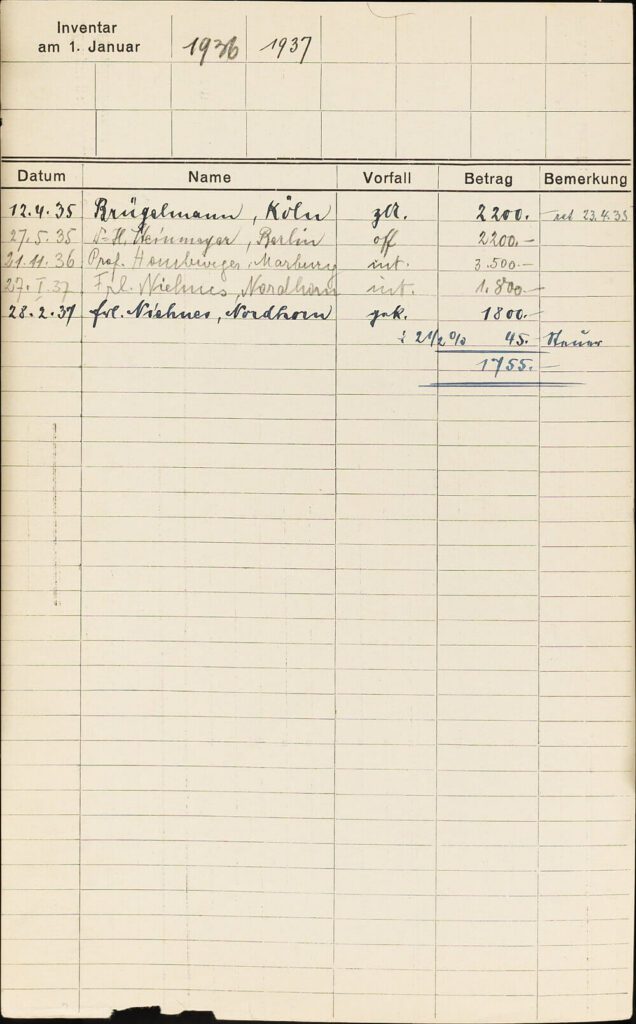 Inventar
am 1. Januar 1936 1937
Datum Name Vorfall Betrag Bemerkung
12.4.35 Brügelmann, Köln 2200.- ret 23.4.35
27.5.35 Berlin off 2200.-
21.11.36 Prof. Hamburger, Marburg int. 3.500.-
27.I.37 Frl. Niehues, Nordhorn int. 1.800.-
28.2.37 Frl. Niehues, Nordhorn gek. 1800.-
2 1/2 % 45.- Steuer
1755.-